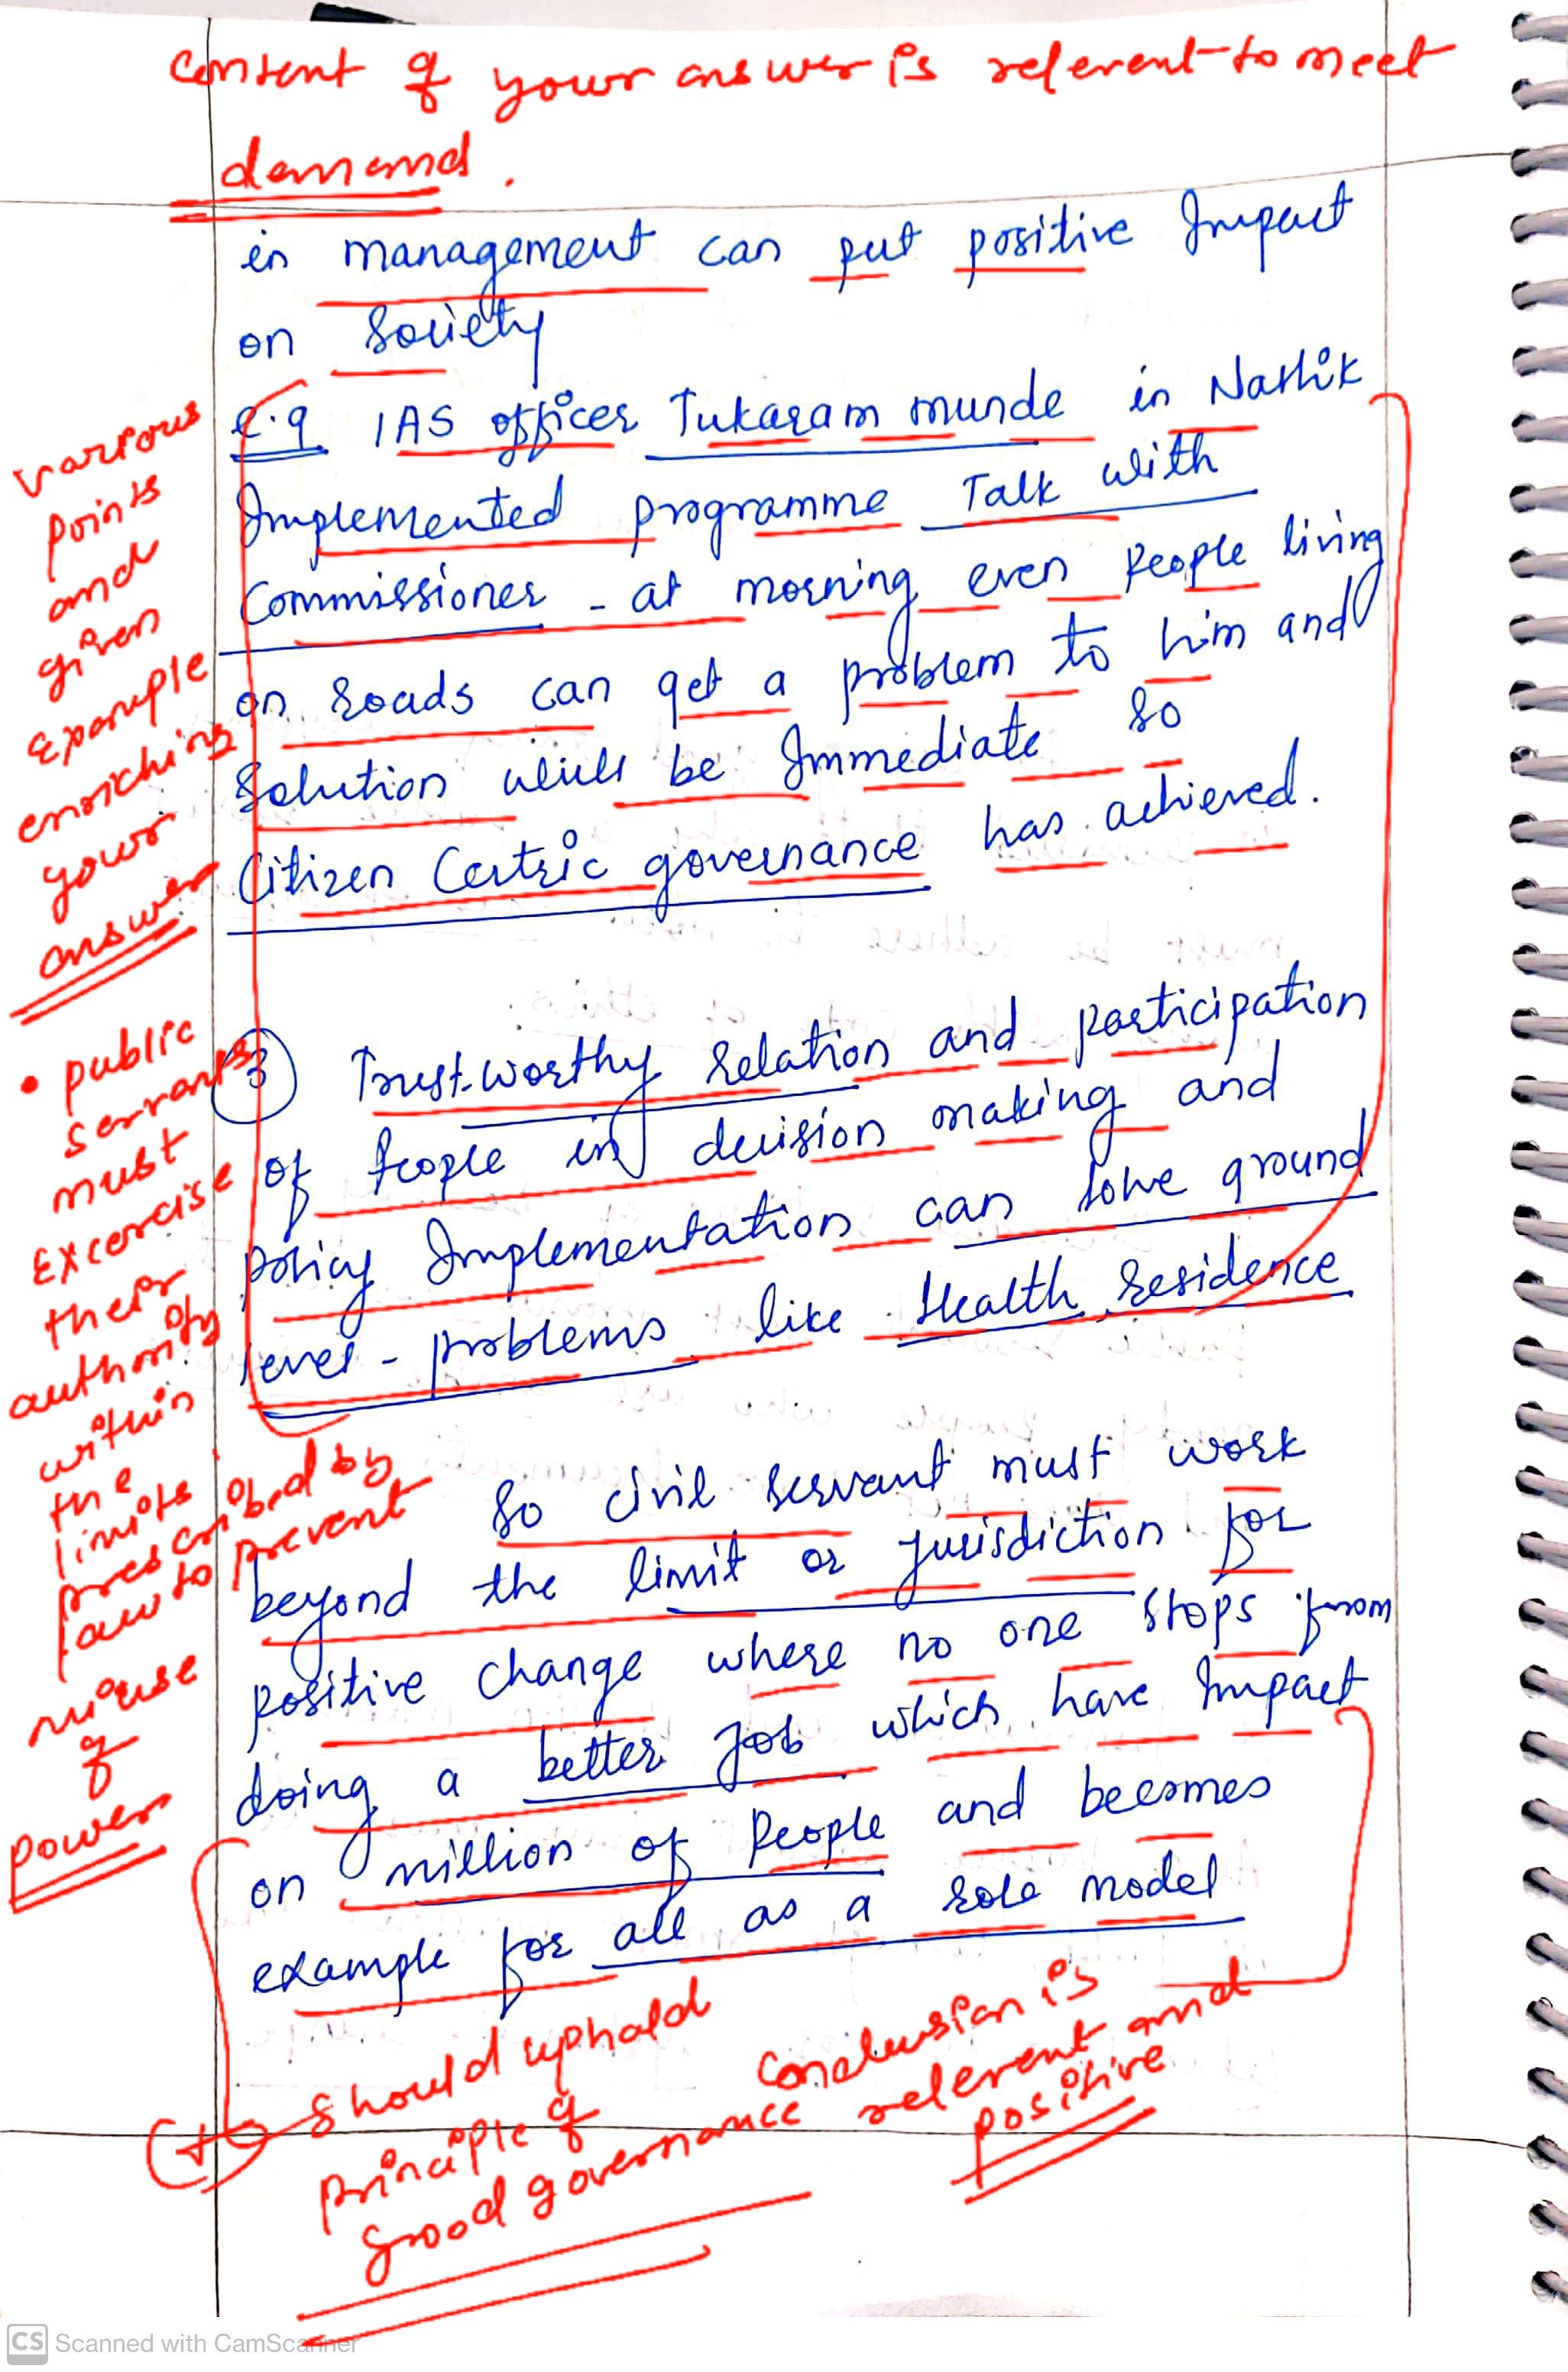 Content of your answer is relevant to meet
demand.
in management can put positive Impact
on Society
e.g IAS officer Tukaram munde in Nashik
Implemented programme Talk with
Commissioner - at morning even People living
on roads can get a problem to him and
Solution will be Immediate so
Citizen Centric governance has achieved.
③ Trust-worthy relation and participation
of People in decision making and
policy Implementation can solve ground
level - problems like Health, residence
So civil servant must work
beyond the limit or jurisdiction for
positive change where no one stops from
doing a better Job which have Impact
on million of People and becomes
example for all as a role model
various
points
and
given
example
enriching
your
answer
• public
servants
must
Excercise
their
authority
within
the
limits
prescribed by
law to prevent
misuse
of
power
should uphold
principle of
Good governance
Conclusion is
relevent and
positive
CS Scanned with CamScanner